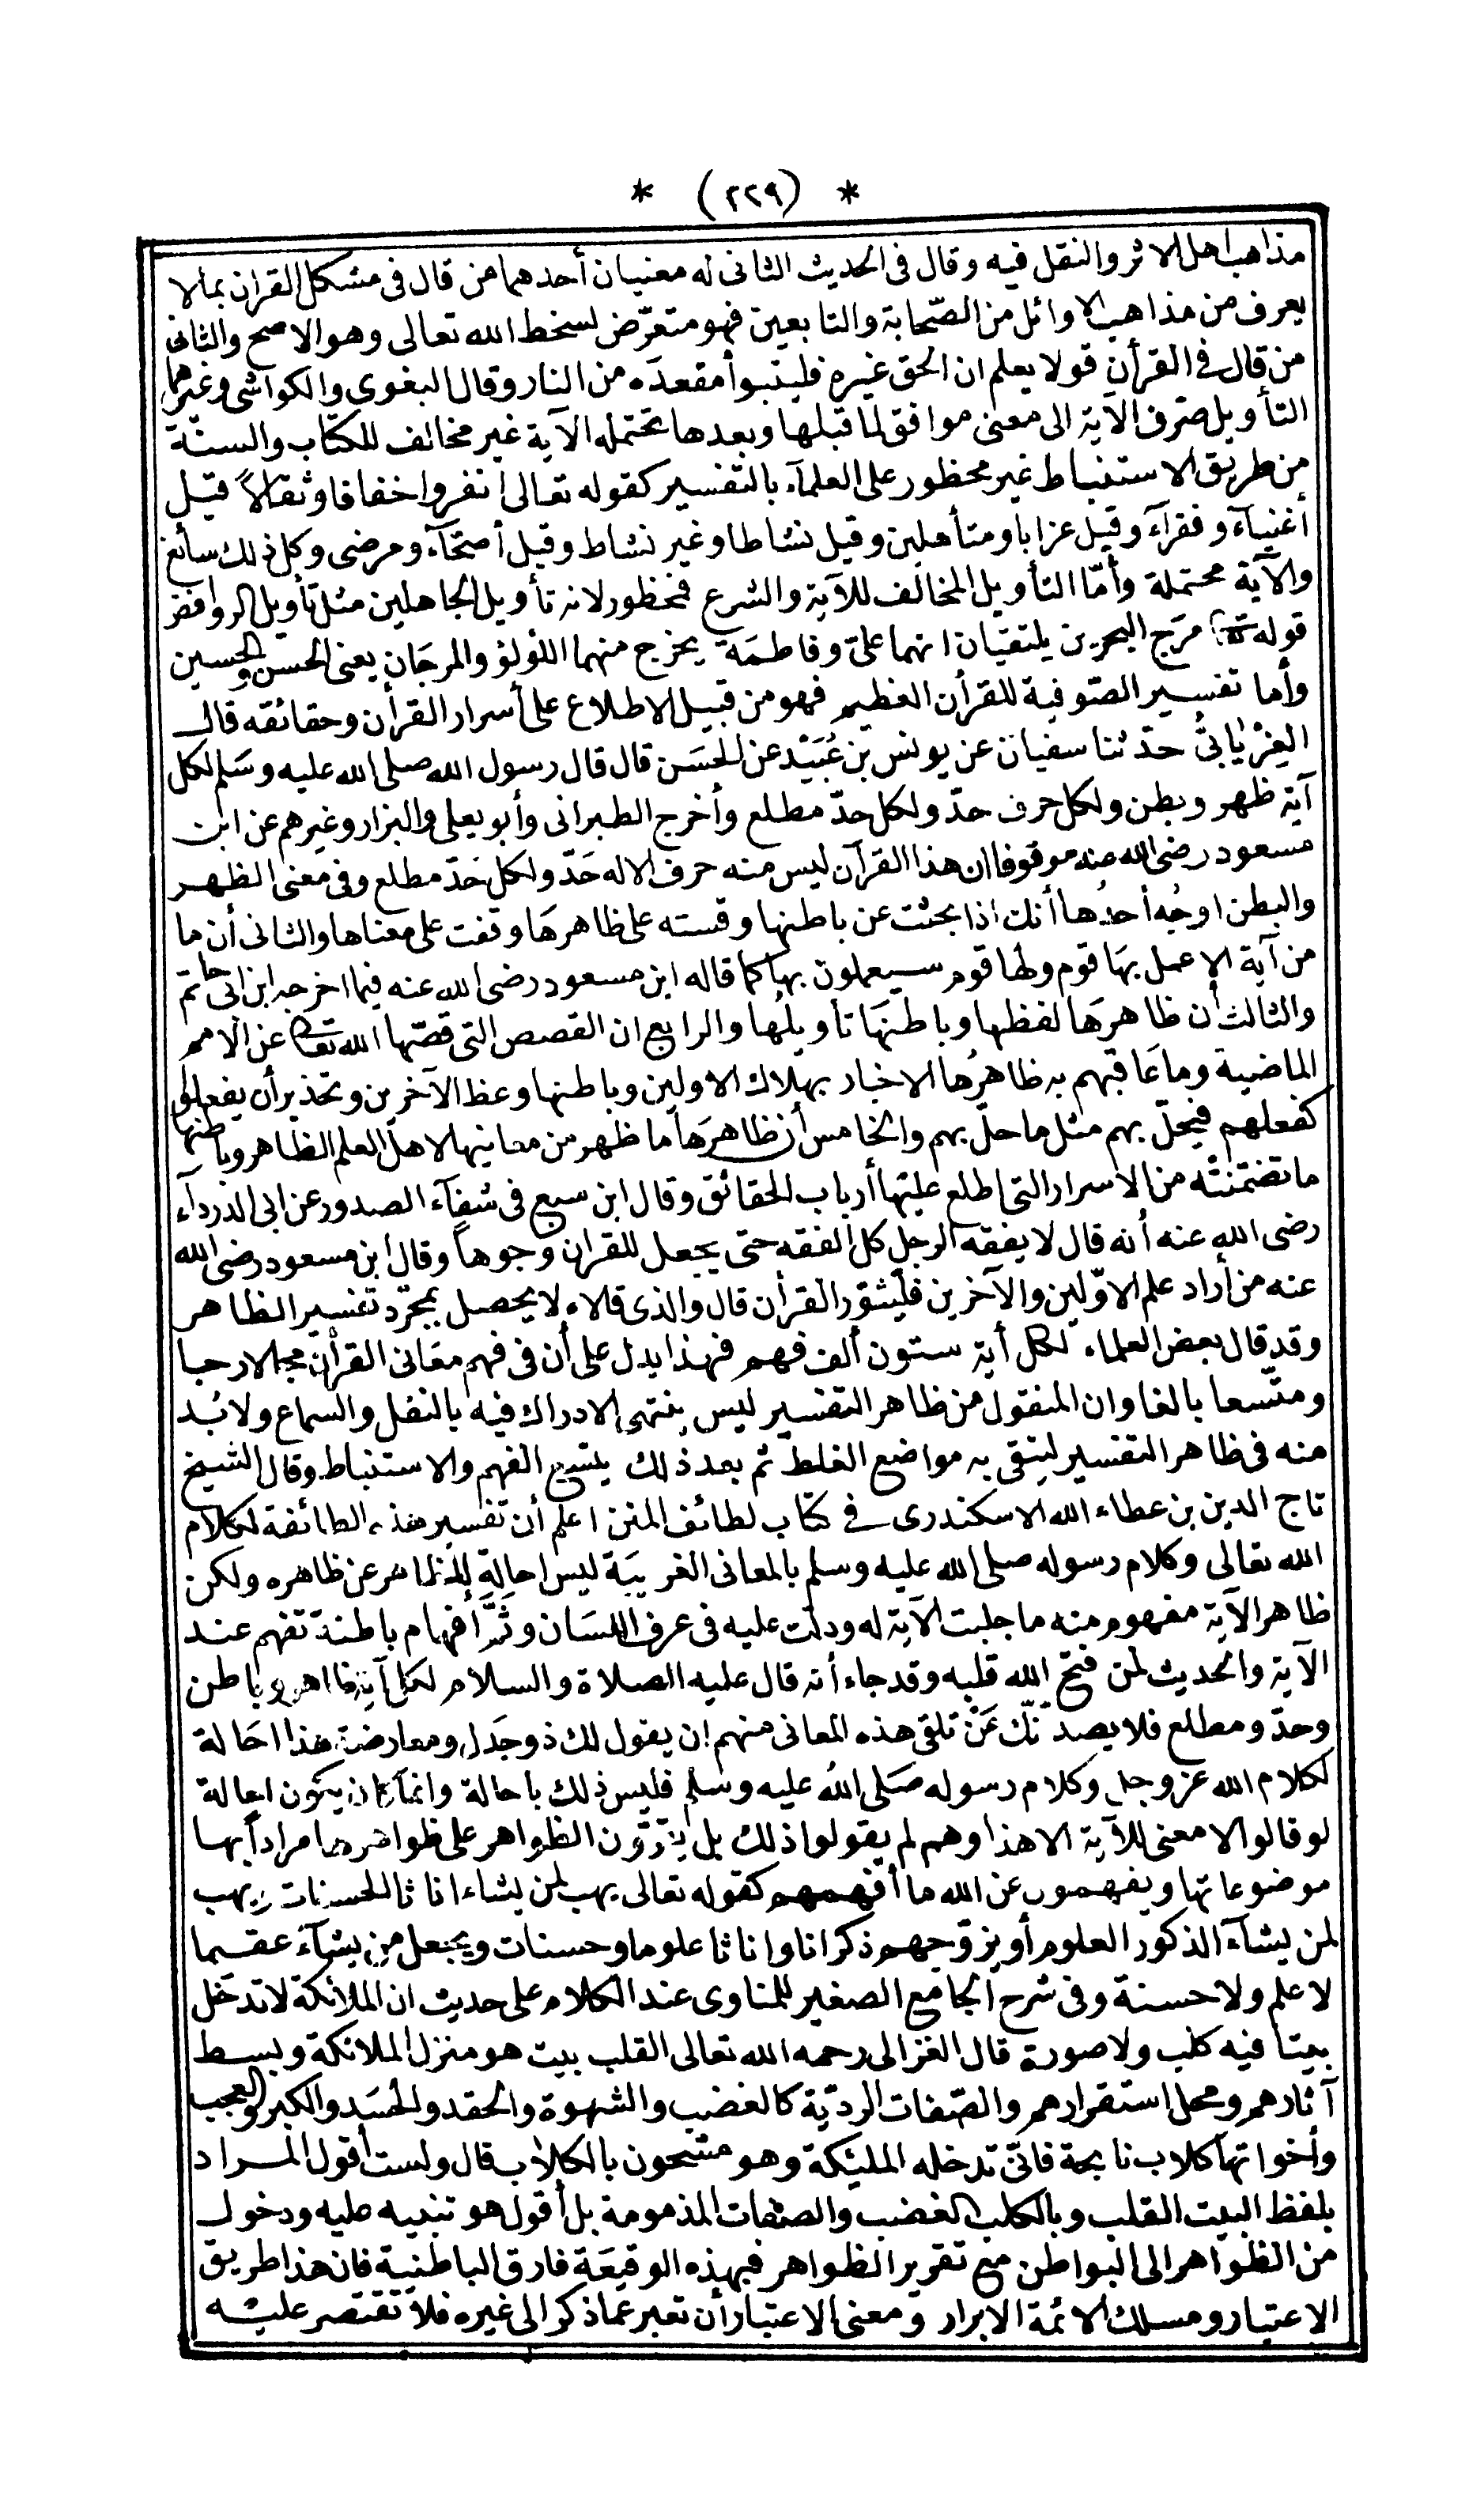 * (٢٢٩) *
مذاهب اهل الاثر والنقل فيه وقال فى الحديث الثانى له معنيان أحدهما من قال فى مشكل القران بمالا
يعرف من مذاهب الاوائل من الصّحابة والتابعين فهو متعرّض لسخط الله تعالى وهو الاصح والثانى
من قال فى القرأن قولا يعلم ان الحق غيره فليتبوأ مقعده من النار وقال البغوى والكواشى وغيرهما
التأويل صرف الآية الى معنى موافق لما قبلها وبعدها تحتمله الآية غير مخالف للكتاب والسنّة
من طريق الاستنباط غير محظور على العلمآء بالتفسير كقوله تعالى انفروا خفافا وثقالاً قيل
أغنيآء وفقرآء وقيل عزابا ومتأهلين وقيل نشاطا وغير نشاط وقيل أصحّآء ومرضى وكل ذلك سائغ
والآية محتملة وأمّا التأويل المخالف للآية والشرع فمحظور لانه تأويل الجاهلين مثل تأويل الروافض
قوله تعالى مرَج البحرين يلتقيان انهما علىّ وفاطمَة يخرج منهما اللؤلؤ والمرجَان يعنى الحسن والحسين
وأما تفسير الصّوفية للقرأن العظيم فهو من قبيل الاطلاع على أسرار القرأن وحقائقه قال
الفِرْيَابىّ حدّثنا سفيان عن يونس بن عُبَيْد عن الحسَن قال قال رسول الله صلى الله عليه وسَلم لكل
آية ظهر وبطن ولكل حرف حدّ ولكل حدّ مطلع وأخرج الطبرانى وأبو يعلى والبزار وغيرهم عن ابن
مسعود رضى الله عنه موقوفا ان هذا القرآن ليس منه حرف الا له حَدّ ولكل حَدّ مطلع وفى معنى الظهر
والبطن اوجُه أحدُها أنك اذا بحثت عن باطنها وقسته على ظاهرهَا وقفت على معناها والثانى أن ما
من آية الا عمل بهَا قوم ولها قوم سيعملون بها كما قاله ابن مسعود رضى الله عنه فيما اخرجه ابن ابى حاتم
والثالث أن ظاهرَها لفظها وباطنهَا تأويلُها والرابع ان القصص التى قصّها الله تعالى عن الامم
الماضية وما عَاقبهم به ظاهرُها الاخبار بهلاك الاولين وباطنها وعظ الآخرين وتحذير أن يفعلوا
كفعلهم فيحلّ بهم مثل ما حلّ بهم والخامس أن ظاهرَها ما ظهر من معانيها لاهل العلم الظاهر وباطنها
ما تضمّنتْه من الاسرار التى اطلع عليْها أرباب الحقائق وقال ابن سبع فى شفآء الصدور عن ابى الدردآء
رضى الله عنه أنه قال لا يفقه الرجل كل الفقه حتى يجعل للقران وجوهاً وقال ابن مسعود رضى الله
عنه من أراد علم الاوّلين والآخرين فليُثوّر القرأن قال والذى قالاه لا يحصل بمجرّد تفسير الظاهر
وقد قال بعض العلماء لكل أية ستون ألف فهم فهذا يدل على أن فى فهم معَانى القرأن مجالا رحبا
ومتّسعا بالغا وان المنقول من ظاهر التفسير ليس ينتهى الادراك فيه بالنقل والسماع ولا بُد
منه فى ظاهر التفسير ليتقى به مواضع الغلط ثم بعد ذلك يتسع الفهم والاستنباط وقال الشيخ
تاج الدين بن عطاء الله الاسكندرى فى كتاب لطائف المنن اعلم أن تفسير هذه الطائفة لكلام
الله تعالى وكلام رسوله صلى الله عليه وسلم بالمعانى الغريبَة ليس احالة للظاهر عن ظاهره ولكن
ظاهر الآية مفهوم منه ما جلبت الآية له ودلت عليه فى عرف اللسَان وثَمَّ أفهام باطنة تفهم عند
الآية والحديث لمن فتح الله قلبه وقد جاء أنه قال عليه الصلاة والسلام لكل آية ظاهر وباطن
وحدّ ومطلع فلا يصدنّك عَنْ تلقى هذه المعانى منهم ان يقول لك ذو جَدل ومعارضة هذا احَالة
لكلام الله عز وجل وكلام رسوله صَلى اللهُ عليه وسلم فليس ذلك باحالة وانمَا كان يكون احالة
لو قالوا لا معنى للآية الا هذا وهم لم يقولوا ذلك بل يقرّون الظواهر على ظواهرها مراداً بها
موضوعاتها ويفهمون عن الله ما أفهمهم كقوله تعالى يهب لمن يشاء اناثا الحسنات ويهب
لمن يشآء الذكور العلوم أو يزوّجهم ذكرانا واناثا علوما وحسنات ويجعل من يشآء عقيما
لا علم ولا حسنة وفى شرح الجامع الصغير للمناوى عند الكلام على حديث ان الملائكة لا تدخل
بيتا فيه كلب ولا صورة قال الغزالى رحمه الله تعالى القلب بيت هو منزل الملائكة وبسط
آثارهم ومحل استقرارهم والصّفات الرديّة كالغضب والشهوة والحقد والحسَد والكبر والعجب
وأخواتها كلاب نابحة فانّى تدخله المليكة وهو مشحون بالكلاب قال ولست أقول المراد
بلفظ البيت القلب وبالكلب الغضب والصفات المذمومة بل أقول هو تنبيه عليه ودخول
من الظواهر الى البواطن مع تقرير الظواهر فبهذه الوقيعَة فارق الباطنية فان هذا طريق
الاعتبار ومسلك الائمة الابرار ومعنى الاعتبار أن تعبر عما ذكر الى غيره فلا تقتصر عليْه